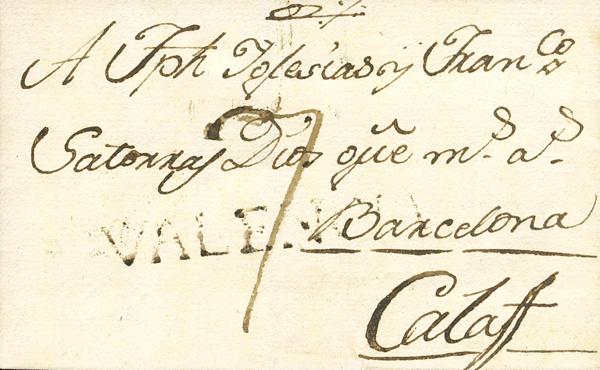 A Jph Yglesias y Franco
Satorras Dios gue ms as
7
VALEN
Barcelona
Calaff